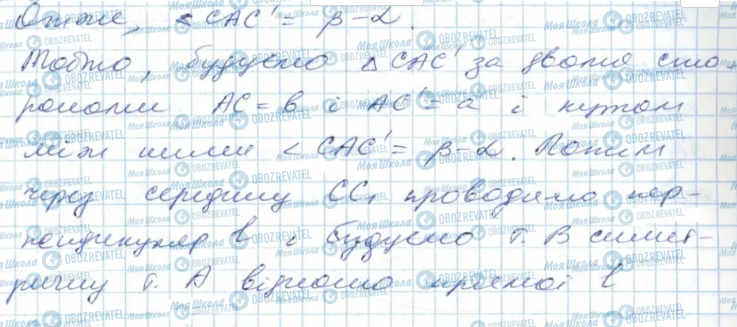 Отже, < CAC' = β-α.
Тобто, будуємо △ CAC' за двома сто-
ронами AC = b і AC' = a і кутом
між ними < CAC' = β-α. Потім
через середину CC₁ проводимо пер-
пендикуляр l і будуємо т. B симет-
ричну т. A відносно прямої l